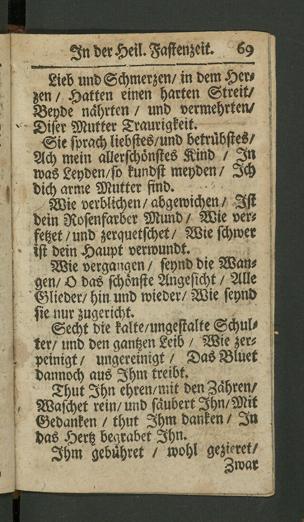 In der Heil. Fastenzeit. 69
Lieb und Schmerzen/ in dem Her-
zen / Hatten einen harten Streit/
Beyde nährten / und vermehrten/
Diser Mutter Traurigkeit.
Sie sprach liebstes/und betrübstes/
Ach mein allerschönstes Kind / In
was Leyden/so kundst meyden / Ich
dich arme Mutter find.
Wie verblichen / abgewichen / Ist
dein Rosenfarber Mund / Wie ver-
setzet / und zerquetschet / Wie schwer
ist dein Haupt verwundt.
Wie vergangen / seynd die Wan-
gen/ O das schönste Angesicht / Alle
Glieder/ hin und wieder/ Wie seynd
sie nur zugericht.
Secht die kalte/ungestalte Schul-
ter/ und den gantzen Leib / Wie zer-
peinigt / ungereinigt / Das Bluet
dannoch aus Ihm treibt.
Thut Ihn ehren/mit den Zähren/
Waschet rein/ und säubert Ihn/Mit
Gedanken / thut Ihm danken / In
das Hertz begrabet Ihn.
Ihm gebühret / wohl gezieret/
Zwar